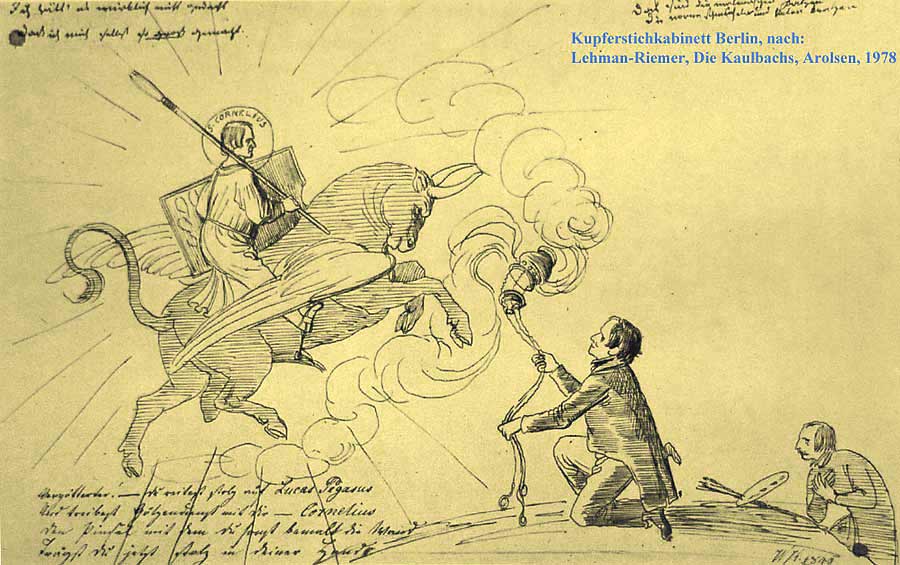 Ich hätt' es wirklich nicht gedacht
Daß ich mich selbst so groß gemacht.
Daß sind die
Die vorne und hinten kratzen
Kupferstichkabinett Berlin, nach:
Lehman-Riemer, Die Kaulbachs, Arolsen, 1978
S. CORNELIUS
Vergötterter. — Du reitest stolz auf Lucas Pegasus
Und treibest Götzendienst mit dir — Cornelius
Den Pinsel mit dem du sonst bemalt die Wand
Trägst du jetzt stolz in deiner Hand